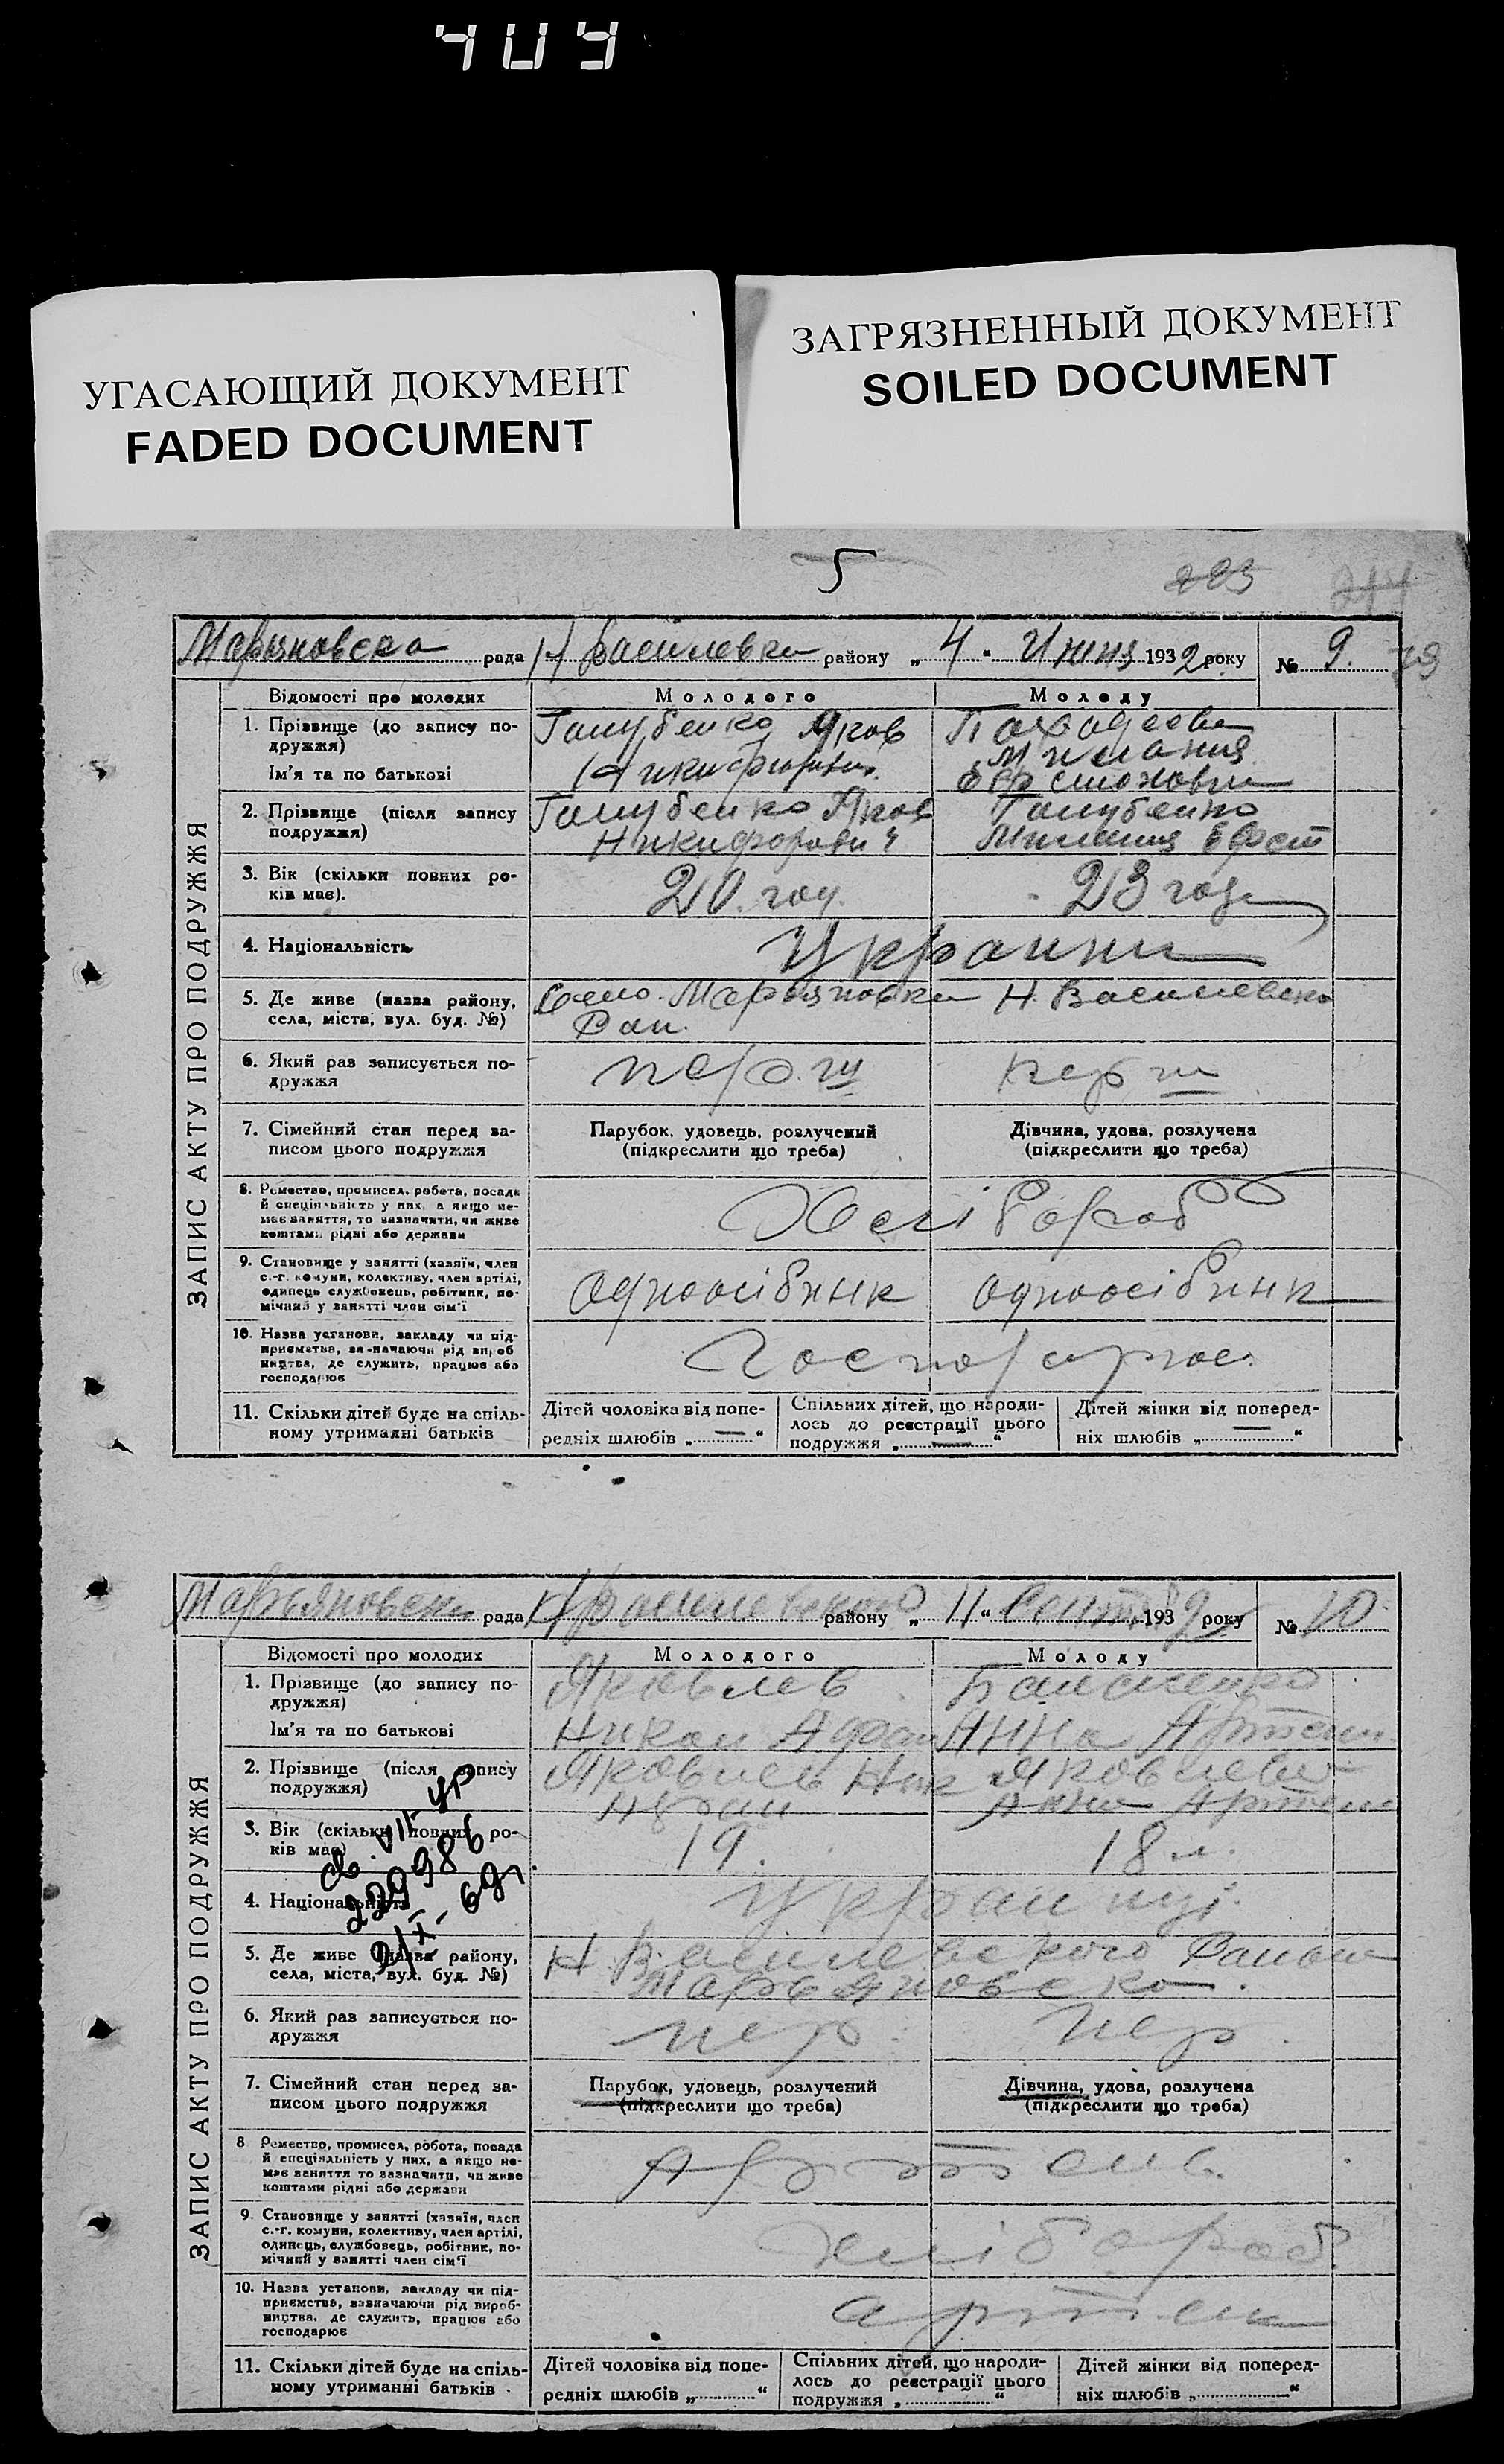 УГАСАЮЩИЙ ДОКУМЕНТ
FADED DOCUMENT
ЗАГРЯЗНЕННЫЙ ДОКУМЕНТ
SOILED DOCUMENT
5
Марьяновска рада Н Василевки району „ 4 “ Июня 1932 року № 9.
ЗАПИС АКТУ ПРО ПОДРУЖЖЯ
Відомості про молодих
Молодого
Молоду
1. Прізвище (до запису по-
дружжя)
Ім'я та по батькові
Голубенко Яков
Никифорович
2. Прізвище (після запису
подружжя)
Голубенко Яков
Никифорович
Голубенко
3. Вік (скільки повних ро-
ків має).
20 год.
23 года
4. Національність
Украинц
5. Де живе (назва району,
села, міста, вул. буд. №)
Село Марьяновка Н. Василевско
Рай.
6. Який раз записується по-
дружжя
перши
перши
7. Сімейний стан перед за-
писом цього подружжя
Парубок, удовець, розлучений
(підкреслити що треба)
Дівчина, удова, розлучена
(підкреслити що треба)
8. Ремество, промисел, робота, посада
й спеціяльність у них, а якщо не-
має заняття, то зазначити, чи живе
коштами рідні або держави
Хлібороб
9. Становище у занятті (хазяїн, член
с.-г. комуни, колективу, член артілі,
одинець службовець, робітник, по-
мічний у занятті член сім'ї
одноосібник
одноосібник
10. Назва установи, закладу чи під-
приємства, зазначаючи рід вироб
ництва, де служить, працює або
господарює
11. Скільки дітей буде на спіль-
ному утриманні батьків
Дітей чоловіка від попе-
редніх шлюбів „ — “
Спільних дітей, що народи-
лось до реєстрації цього
подружжя „ — “
Дітей жінки від поперед-
ніх шлюбів „ — “
Марьяновска рада Н Василевского району „ 11 “ Сентяб 1932 року № 10
ЗАПИС АКТУ ПРО ПОДРУЖЖЯ
Відомості про молодих
Молодого
Молоду
1. Прізвище (до запису по-
дружжя)
Ім'я та по батькові
Яковлев
Анна Артем
2. Прізвище (після запису
подружжя)
Яковлев Ник
Яковлева
Анна Артем
3. Вік (скільки повних ро-
ків має)
19.
18 л.
4. Національність
Украинці
5. Де живе (назва району,
села, міста, вул. буд. №)
Н Василевского Района
Марьяновско
6. Який раз записується по-
дружжя
пер
пер
7. Сімейний стан перед за-
писом цього подружжя
Парубок, удовець, розлучений
(підкреслити що треба)
Дівчина, удова, розлучена
(підкреслити що треба)
8 Ремество, промисел, робота, посада
й спеціяльність у них, а якщо не-
має заняття то зазначити, чи живе
коштами рідні або держави
9. Становище у занятті (хазяїн, член
с.-г. комуни, колективу, член артілі,
одинець, службовець, робітник, по-
мічний у занятті член сім'ї
хлібороб
10. Назва установи, закладу чи під-
приємства, зазначаючи рід вироб-
ництва, де служить, працює або
господарює
11. Скільки дітей буде на спіль-
ному утриманні батьків
Дітей чоловіка від попе-
редніх шлюбів „ “
Спільних дітей, що народи-
лось до реєстрації цього
подружжя „ “
Дітей жінки від поперед-
ніх шлюбів „ “